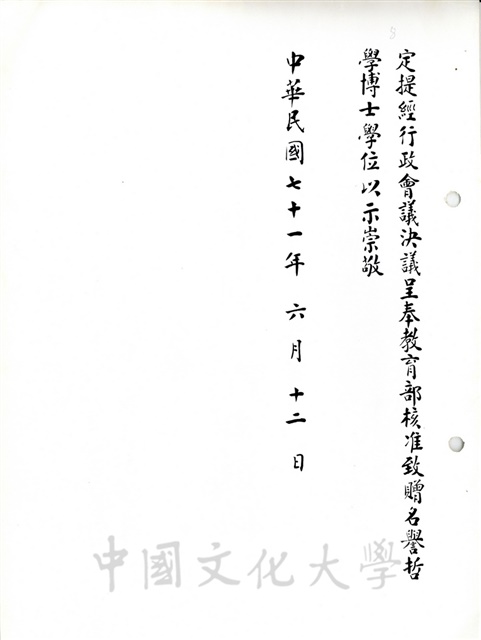 定提經行政會議決議呈奉教育部核准致贈名譽哲
學博士學位以示崇敬
中華民國七十一年 六月 十二日
中國文化大學